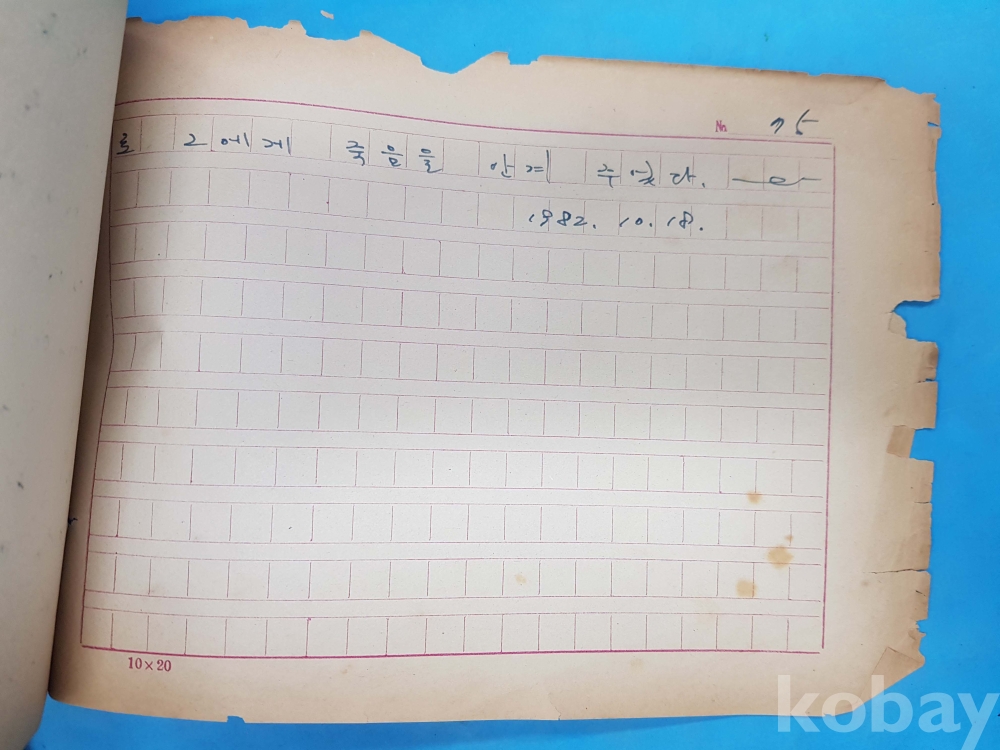 No. 75
로 그에게 죽음을 안겨 주었다. —끝—
1982. 10. 18.
10×20
kobay